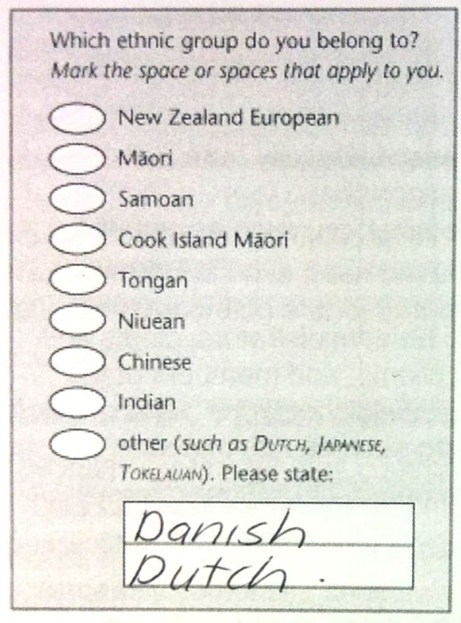 Which ethnic group do you belong to?
Mark the space or spaces that apply to you.
New Zealand European
Māori
Samoan
Cook Island Māori
Tongan
Niuean
Chinese
Indian
other (such as DUTCH, JAPANESE,
TOKELAUAN). Please state:
Danish
Dutch.